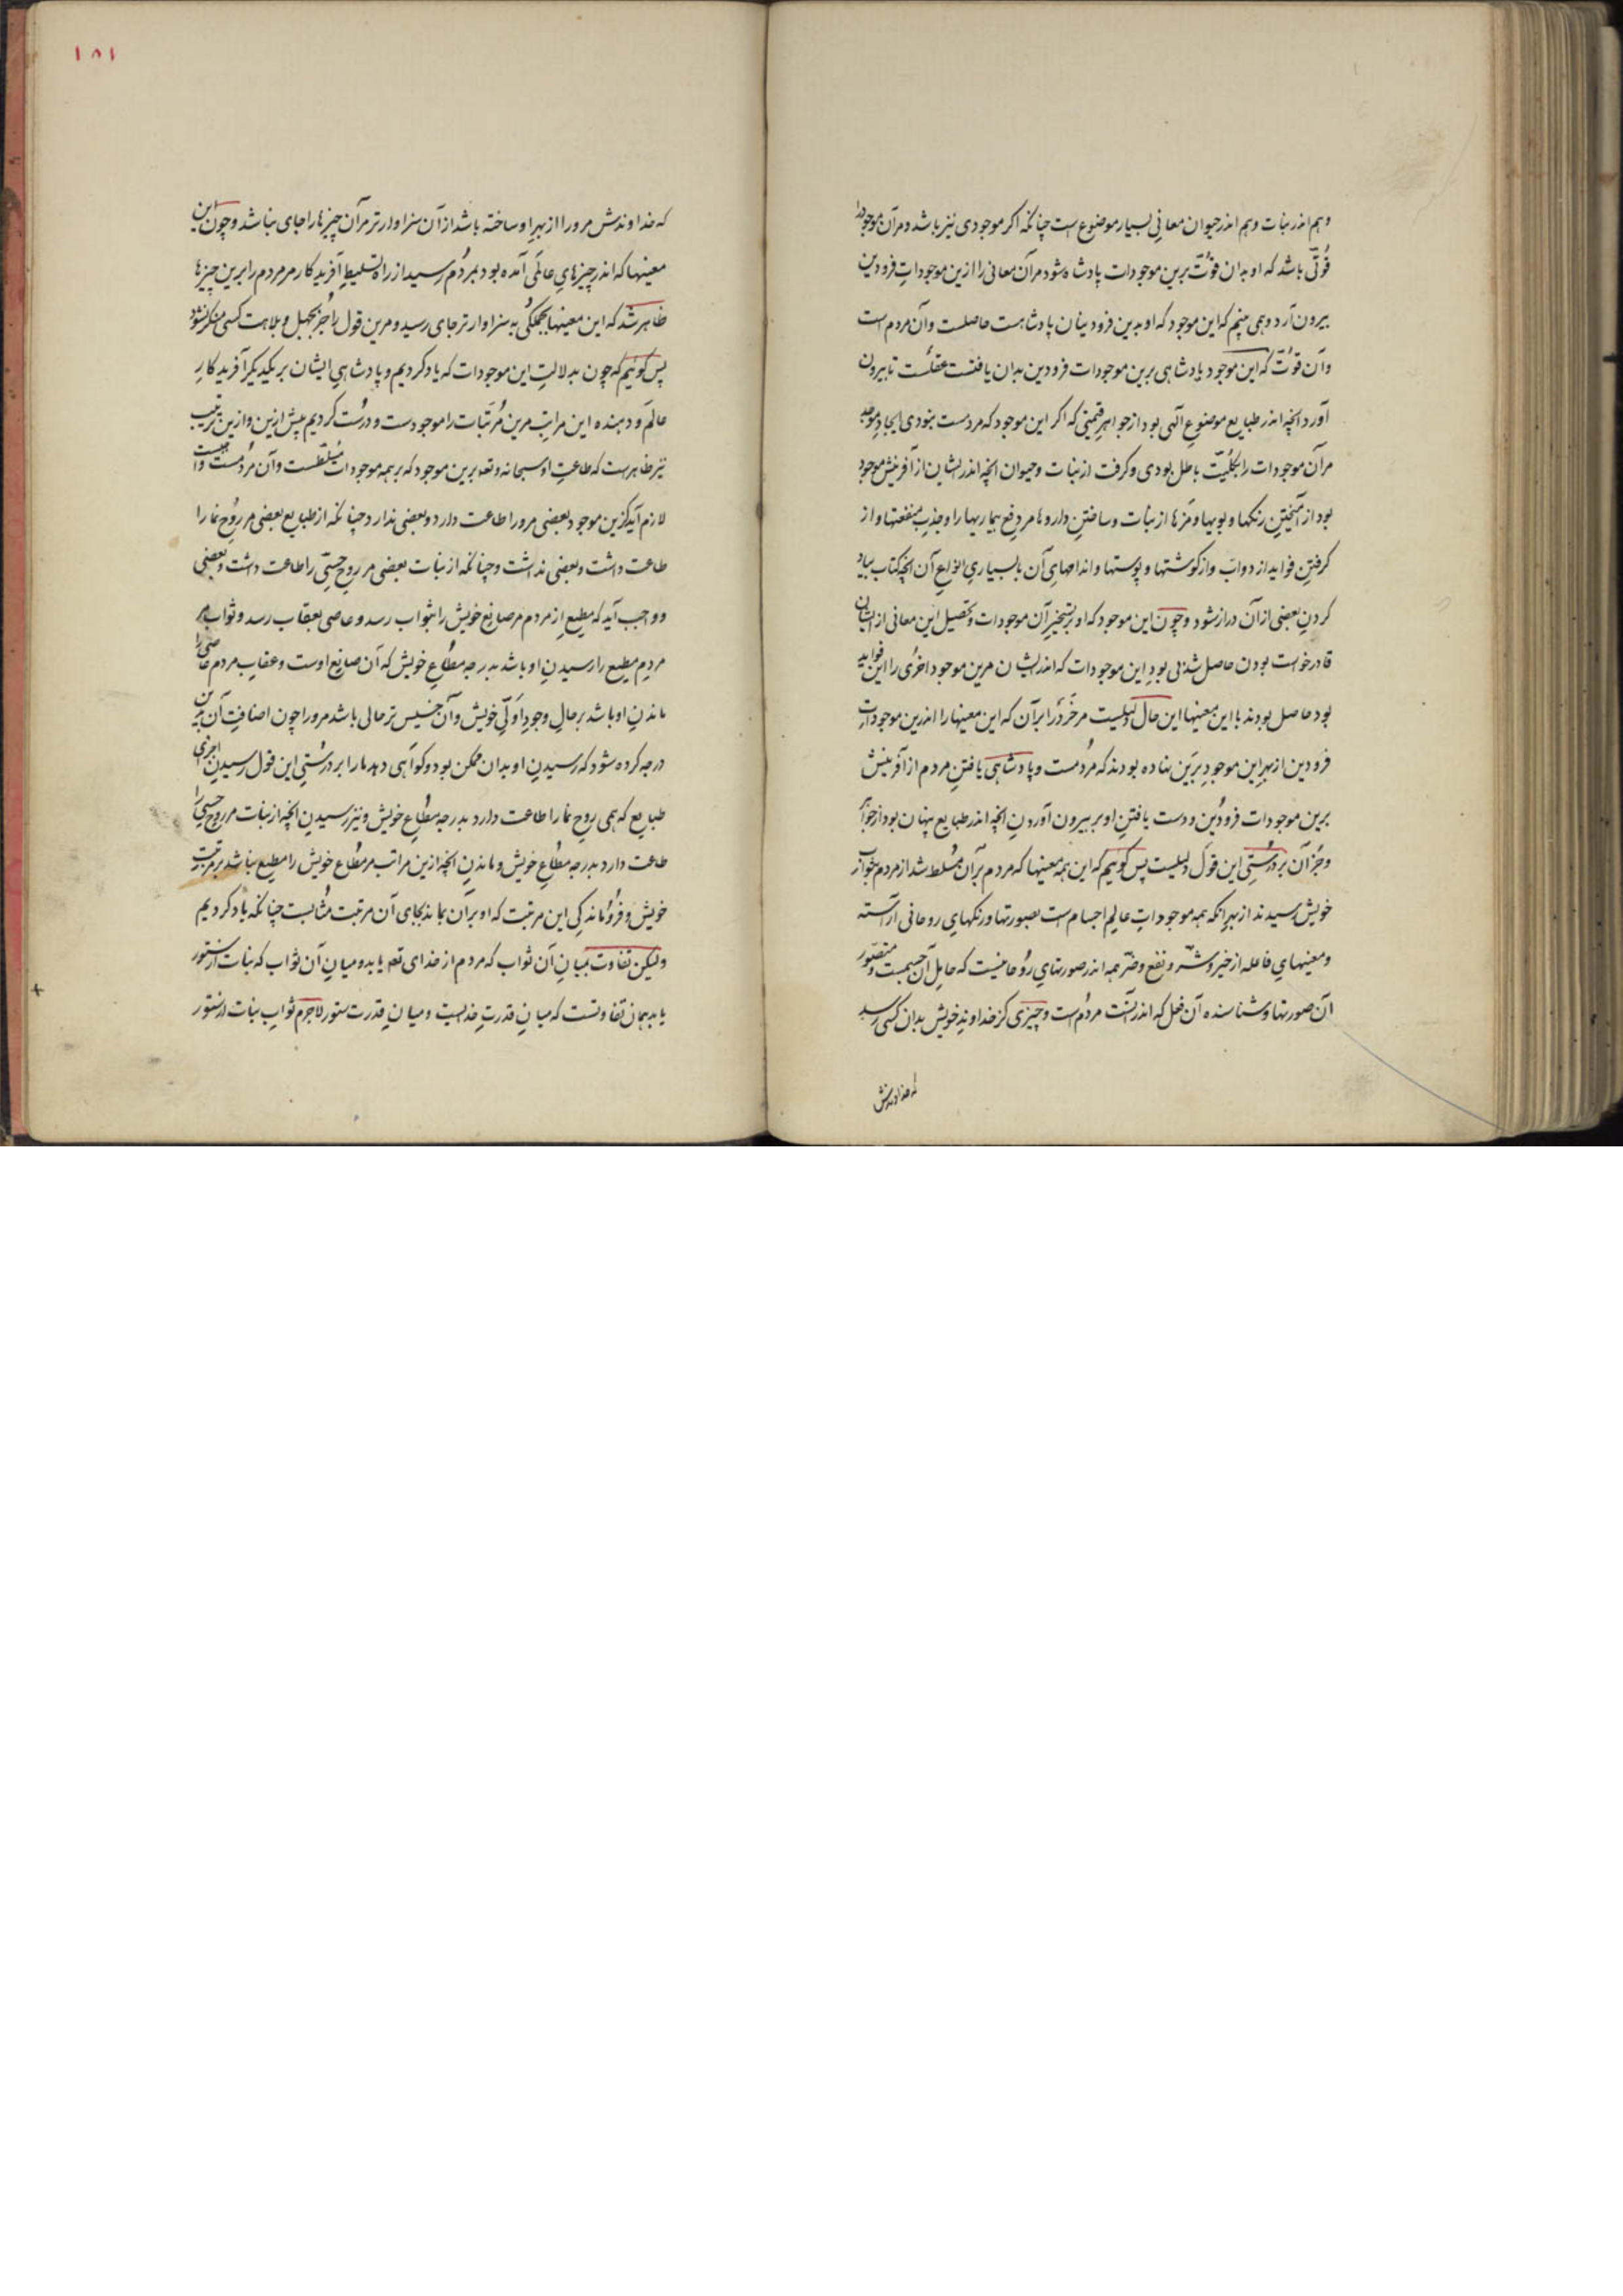 وهم اندر نبات وهم اندر حیوان معانی بسیار موضوع است چنانکه اکر موجودی نیز باشد و مرآن موجود را
قُوتّی باشد که او بدان قوّت برین موجودات پادشاه شود مرآن معانی را ازین موجوداتِ فرودین
بیرون آرد و همی بینیم که این موجود که او بدین فرودینان پادشاهست حاصلست وآن مردم است
وآن قوّت که این موجود پادشاهی برین موجودات فرودین بدان یافتست عقلست تا بیرون
آورد انچه اندر طبایع موضوعِ الهی بود از جواهرِ قیمتی که اکر این موجود که مردمست نبودی ایجادِ موجد
مرآن موجودات را بکلیّت باطل بودی و کرفت از نبات وحیوان انچه اندر ایشان از آفرینش موجود
بود از آمیختنِ رنکها و بویها و مزها از نبات و ساختنِ داروها مر دفعِ بیماریها را وجذبِ منفعتها و از
کرفتنِ فواید از دواب و از کوشتها و پوستها و اندامهایِ آن با بسیاریِ انواعِ آن انچه کتاب بیاد
کردنِ بعضی از آن دراز شود وچون این موجود که او بر تسخیرِ آن موجودات و تحصیل این معانی از ایشان
قادر خواست بودن حاصل شدنی بود این موجودات که اندر ایشان مرین موجود اخری را این فواید
بود حاصل بودند با این معینها این حال دلیلست مر خرد را برآن که این معینها را اندرین موجوداتِ
فرودین از بهرِ این موجودِ برین نهاده بودند که مردُمست و پادشاهی یافتنِ مردم از آفرینش
برین موجودات فرودین و دست یافتنِ او بر بیرون آوردنِ انچه اندر طبایع پنهان بود از جواهر
وجُز آن بر درستیِ این قول دلیلست پس کوییم که این همه معینها که مردم برآن مُسلط شد از مردم بجوار
خویش رسیدند از بهرِ انکه همه موجوداتِ عالمِ اجسام است بصورتها و رنکهایِ روحانی آراسته
و معینهایِ فاعله از خیر و شرّ و نفع و ضرّ همه اندر صورتهایِ روحانیست که حاملِ آن جسمست و متصوّر
آن صورتها و شناسنده آن فعل که اندر آنست مردُم است وچیزی کز خداوندِ خویش بدان کس رسد
که خداوندش
۱۸۱
که خداوندش مرورا از بهرِ او ساخته باشد از آن سزاوارتر مرآن چیزها را جای نباشد وچون این
معینها که اندر چیزهایِ عالمی آمده بود بمردُم رسید از راه تسلیطِ آفریدکار مر مردم را برین چیزها
ظاهر شد که این معینها بجملکی به سزاوارتر جای رسید و مرین قول را جُز بجهل و بلاهت کسی منکر نشود
پس کوئیم که چون بدلالتِ این موجودات که یاد کردیم و پادشاهیِ ایشان بر یکدیکر آفریدکارِ
عالم و دهنده این مراتب مرین مُرتبات را موجودست و درست کردیم پیش ازین و ازین ترتیب
نیز ظاهرست که طاعتِ او سبحانه و تعه برین موجود که بر همه موجودات مُسلّطست وآن مردمست واجبست
لازم آید کزین موجود بعضی مرورا طاعت دارد و بعضی ندارد چنانکه از طبایع بعضی مر روحِ نما را
طاعت داشت و بعضی نداشت وچنانکه از نبات بعضی مر روحِ حسّی را طاعت داشت و بعضی نی
و واجب آید که مطیع از مردم مر صانعِ خویش را بثواب رسد و عاصی بعقاب رسد و ثواب مر
مردمِ مطیع را رسیدنِ او باشد بدرجه مطاعِ خویش که آن صانعِ اوست و عقابِ مردمِ عاصی را
ماندنِ او باشد بر حالِ وجودِ اولّیِ خویش وآن خسیس تر حالی باشد مرورا چون اضافتِ آن برین
درجه کرده شود که رسیدنِ او بدان ممکن بود وکواهی دهد ما را بر درستیِ این قول رسیدنِ اجزای
طبایع که همی روحِ نما را طاعت دارد بدرجه مطاعِ خویش و نیز رسیدنِ انچه از نبات مر روحِ حسّی را
طاعت دارد بدرجه مطاعِ خویش و ماندنِ انچه ازین مراتب مر مطاعِ خویش را مطیع نباشد بر مرتبتِ
خویش و فرُوماندکی این مرتبت که او برآن بماند بجای آن مرتبت مثابست چنانکه یاد کردیم
ولیکن تفاوت میانِ آن ثواب که مردم از خدای تعه یابد و میانِ آن ثواب که نبات از ستور
یابد همان تفاوتست که میانِ قدرتِ خداست و میانِ قدرت ستور لاجرم ثوابِ نبات از ستور